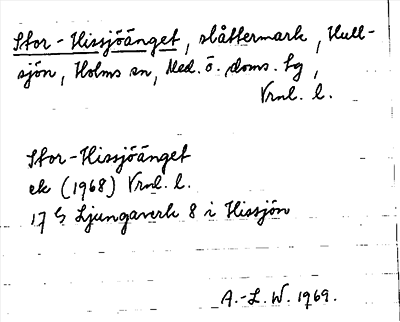 Stor-Hissjöänget, slåttermark, Hull-
sjön, Holms sn, Med. ö. doms. tg,
Vrnl. l.
Stor-Hissjöänget
ek (1968) Vrnl. l.
17 G Ljungaverk 8 i Hissjön
A.-L. W. 1969.